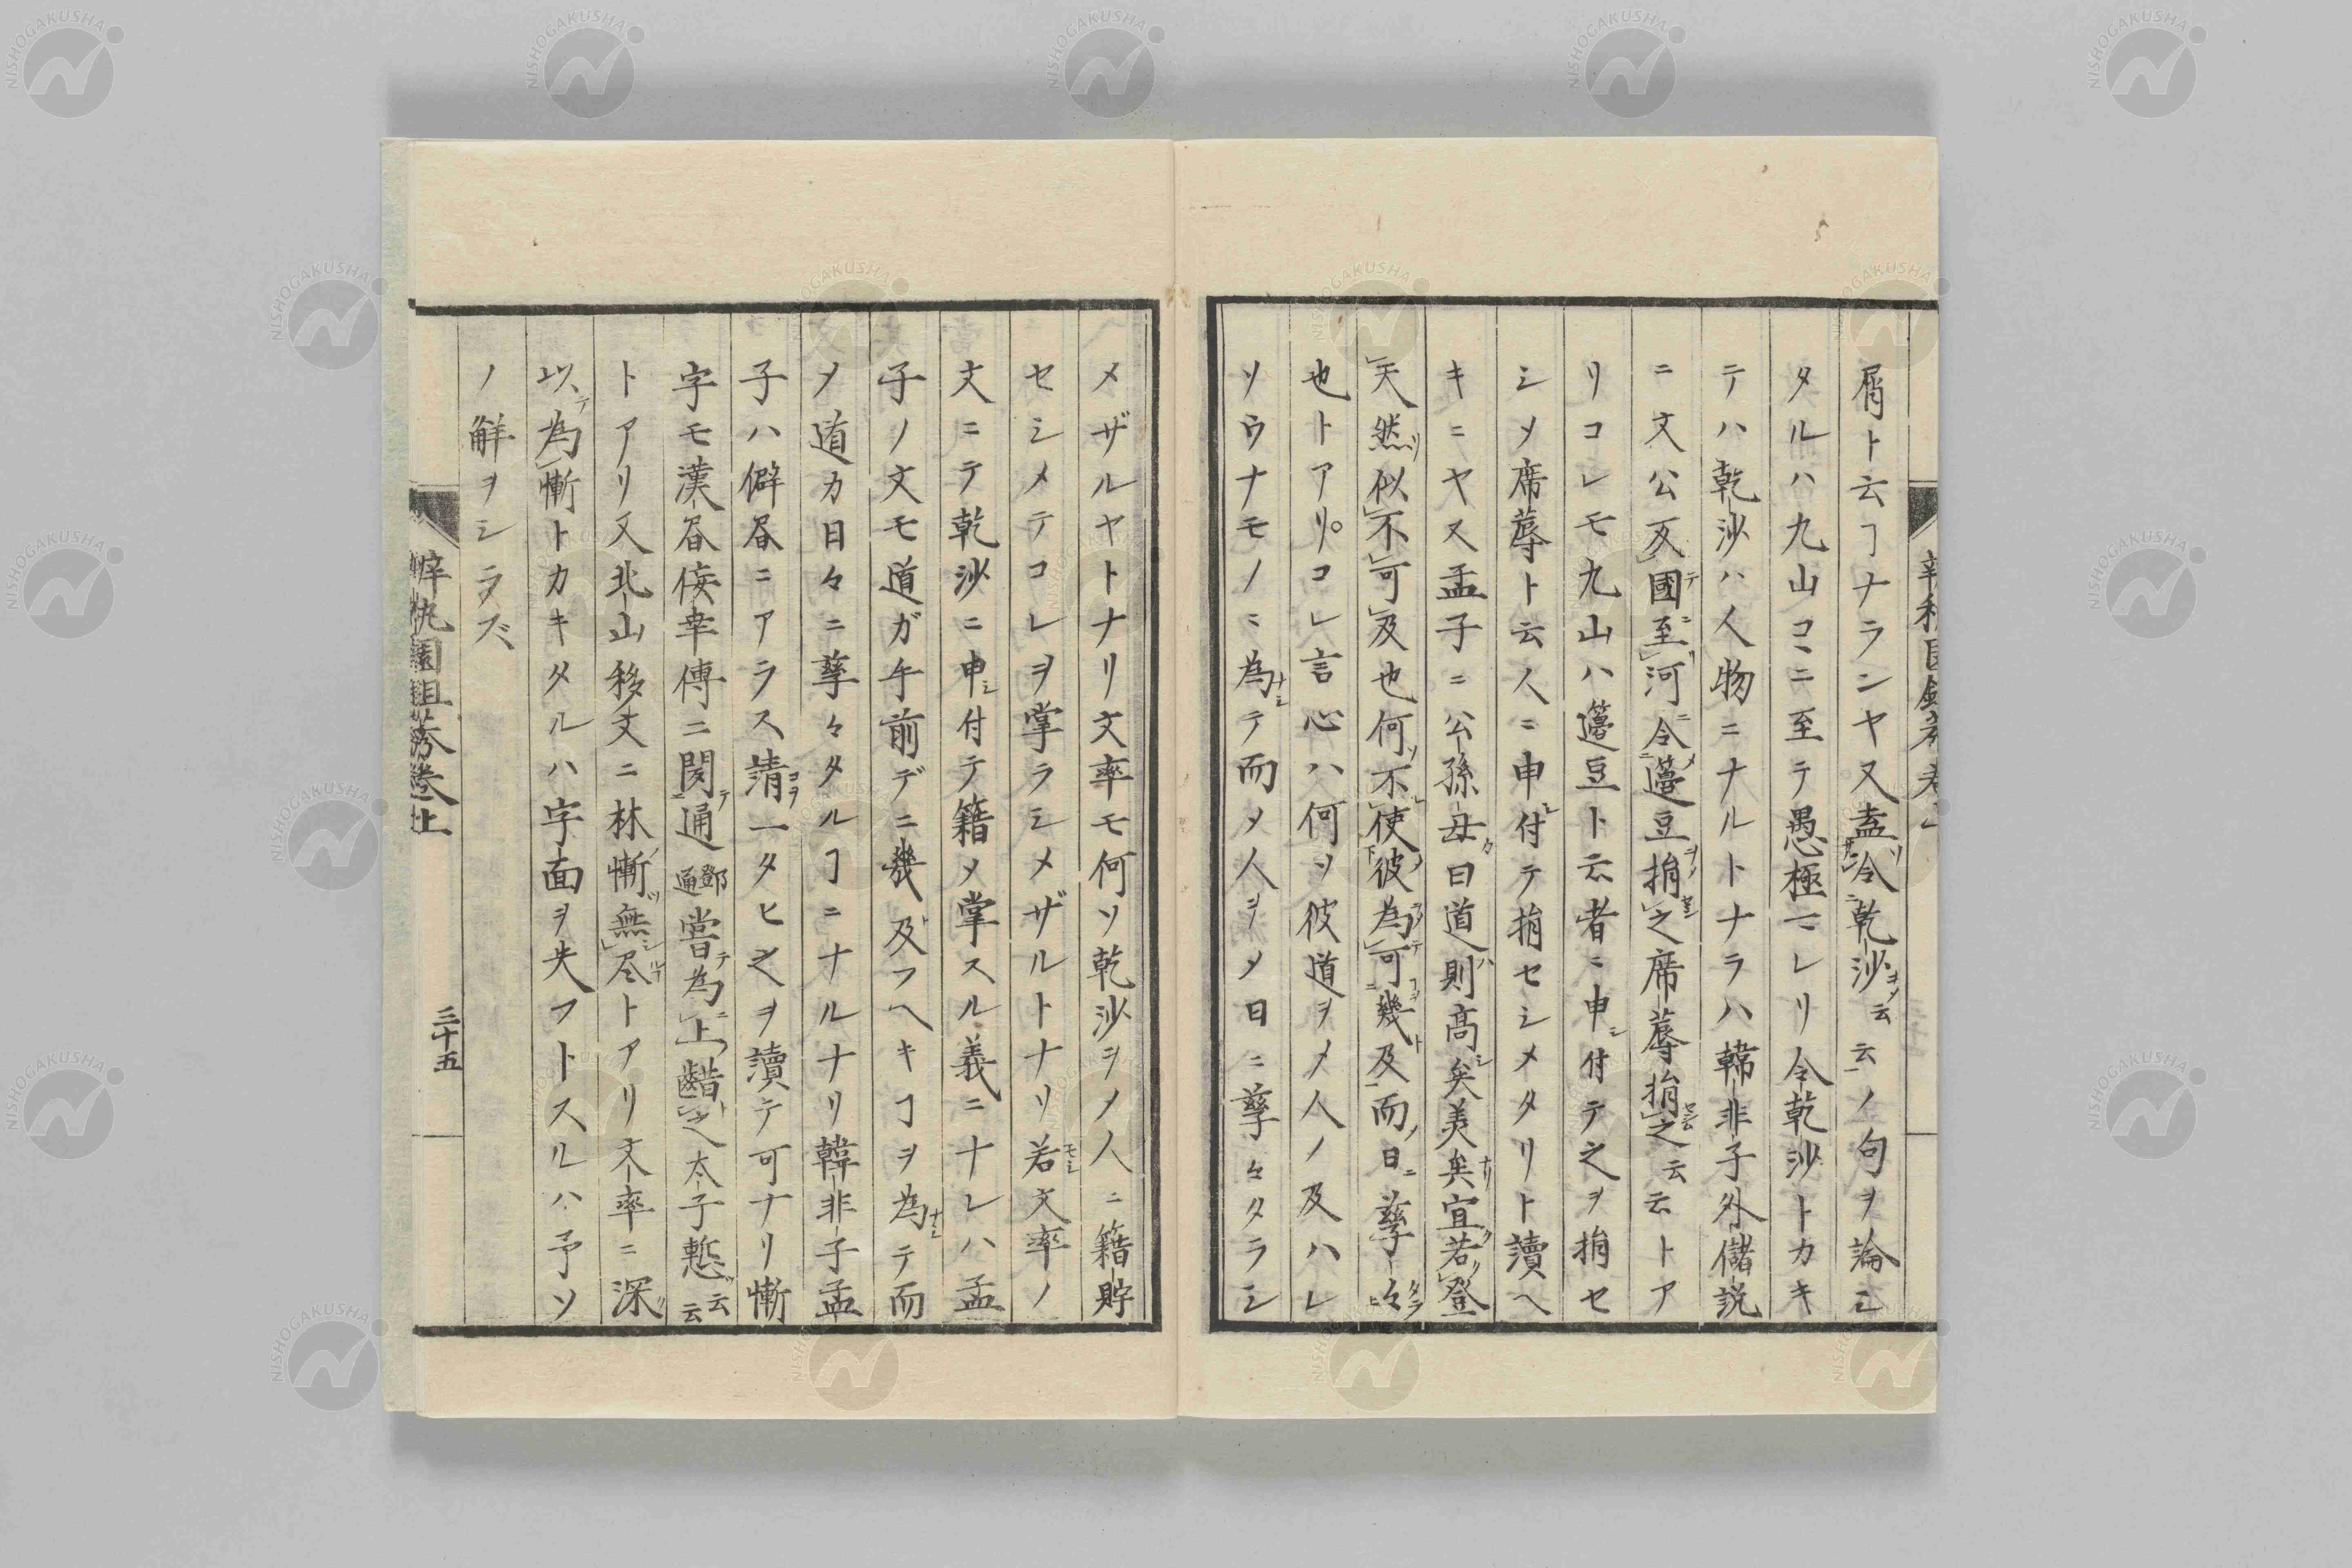 屑ト云ヿナランヤ又盍冷乾沙云云ノ句ヲ論シ
タルハ九山コヽニ至テ愚極マレリ令乾沙トカキ
テハ乾沙ハ人物ニナルトナラハ韓非子外儲説
ニ文公反國至河令籩豆捐之席蓐捐之云云トア
リコレモ九山ハ籩豆ト云者ニ申付テ之ヲ捐セ
シメ席蓐ト云人ニ申付テ捐セシメタリト讀ヘ
キニヤ又孟子ニ公孫丑曰道則高矣美矣宜若登
天然似不可及也何不使彼為可幾及而日孳々
也トアリコレ言心ハ何ソ彼道ヲメ人ノ及ハレ
ソウナモノニ為テ而メ人ヲメ日ニ孳々タラシ
メザルヤトナリ文率モ何ソ乾沙ヲメ人ニ籍貯
セシメテコレヲ掌ラシメザルトナリ若文率ノ
文ニテ乾沙ニ申付テ籍メ掌スル義ニナレハ孟
子ノ文モ道ガ午前デニ幾及フヘキヿヲ為テ而
メ道カ日々ニ孳々タルヿニナルナリ韓非子孟
子ハ僻昏ニアラス請一タヒ之ヲ讀テ可ナリ慚
字モ漢昏佞幸傳ニ閔通鄧通嘗為上齰之太子慙云云
トアリ又北山移文ニ林慚無尽トアリ文率ニ深
以為慚トカキタルハ字面ヲ失フトスルハ予ソ
ノ解ヲシラズ
三十五
NISHOGAKUSHA